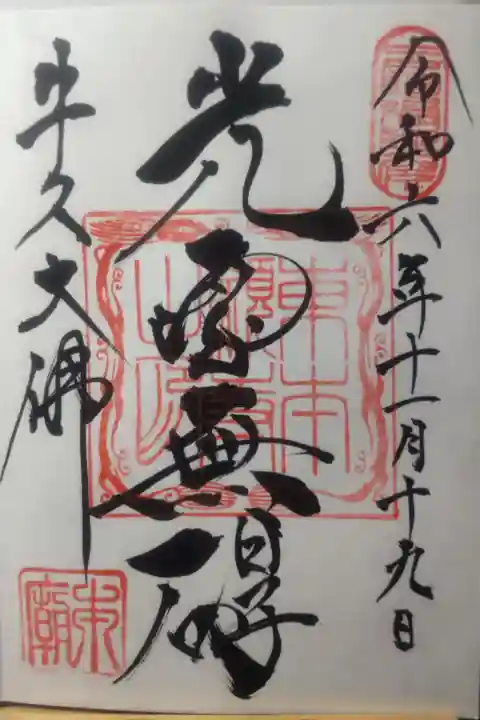 令和六年十一月十九日
光雲無碍
牛久大佛
東本
願寺
之印
本廟